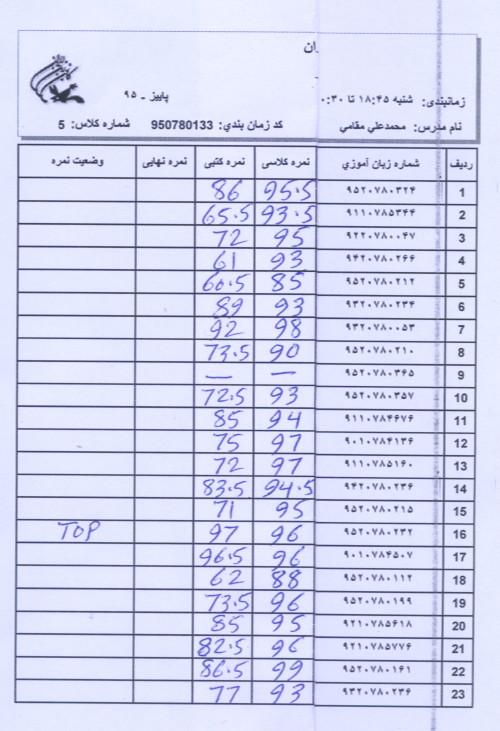 ان
پاییز - ۹۵
زمانبندی: شنبه ۱۸:۴۵ تا ۰:۳۰
نام مدرس: محمدعلي مقامي کد زمان بندي: 950780133 شماره کلاس: 5
رديف شماره زبان آموزي نمره کلاسی نمره کتبی نمره نهایی وضعیت نمره
1 ۹۵۲۰۷۸۰۳۲۴ 95.5 86
2 ۹۱۱۰۷۸۵۳۴۴ 93.5 65.5
3 ۹۲۲۰۷۸۰۰۴۷ 95 72
4 ۹۴۲۰۷۸۰۲۶۶ 93 61
5 ۹۵۲۰۷۸۰۲۱۲ 85 60.5
6 ۹۳۲۰۷۸۰۲۳۴ 93 89
7 ۹۳۲۰۷۸۰۰۵۳ 98 92
8 ۹۵۲۰۷۸۰۲۱۰ 90 73.5
9 ۹۵۲۰۷۸۰۳۶۵ — —
10 ۹۵۲۰۷۸۰۳۵۷ 93 72.5
11 ۹۱۱۰۷۸۴۶۷۶ 94 85
12 ۹۰۱۰۷۸۴۱۳۶ 97 75
13 ۹۱۱۰۷۸۵۱۶۰ 97 72
14 ۹۴۲۰۷۸۰۲۳۶ 94.5 83.5
15 ۹۵۲۰۷۸۰۲۱۵ 95 71
16 ۹۵۲۰۷۸۰۲۳۲ 96 97 TOP
17 ۹۰۱۰۷۸۴۵۰۷ 96 96.5
18 ۹۵۲۰۷۸۰۱۱۲ 88 62
19 ۹۵۲۰۷۸۰۱۹۹ 96 73.5
20 ۹۲۱۰۷۸۵۶۱۸ 95 85
21 ۹۲۱۰۷۸۵۷۷۶ 96 82.5
22 ۹۵۲۰۷۸۰۱۶۱ 99 86.5
23 ۹۳۲۰۷۸۰۲۳۶ 93 77